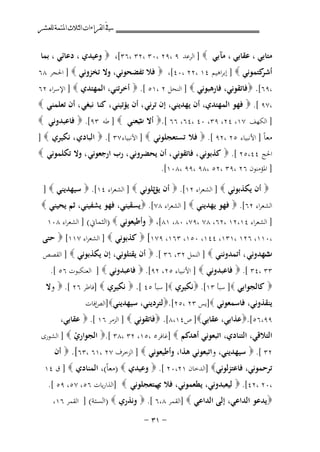 سلسلة القراءات الثلاث المتممة للعشر
متابي ، عقابي ، مآبي ﴾ [ الرعد ٩ ،٢٩ ،٣٠ ،٣٢ ،٣٦]، ﴿ وعيدي ، دعائي ، بما
أشركتموني ﴾ [ إبراهيم ١٤ ،٢٢ ،٤٠]، ﴿ فلا تفضحوني، ولا تخزوني ﴾ [ الحجر ٦٨
،٦٩]. ﴿فاتقوني، فارهبوني ﴾ [ النحل ٢ ،٥١ ]. ﴿ أخرتني، المهتدي ﴾ [ الإسراء ٦٢
،٩٧ ]. ﴿ فهو المهتدي، أن يهديني، إن ترني، أن يؤتيني، كنا نبغي، أن تعلمني
﴾ [ الكهف ١٧ ،٢٤ ،٣٩ ،٤٠ ،٦٤ ،٦٦ ]. ﴿ ألا تتبعني ﴾ [ طه ٩٣]. ﴿ فاعبدوني
﴾ معاً [ الأنبياء ٢٥ ،٩٢ ]. ﴿ فلا تستعجلوني ﴾ [ الأنبياء٣٧ ]. ﴿ البادي، نكيري ﴾ [
الحج ٢٥،٤٤ ]. ﴿ كذبوني، فاتقوني، أن يحضروني، رب ارجعوني، ولا تكلموني ﴾ [
المؤمنون ٢٦ ،٣٩ ،٥٢ ،٩٨ ،٩٩ ،١٠٨].
﴿ أن يكذبوني ﴾ [ الشعراء ١٢ ]. ﴿ أن يقتلوني ﴾ [ الشعراء ١٤]. ﴿ سيهديني ﴾ [
الشعراء ٦٢]. ﴿ فهو يهديني ﴾ [ الشعراء ٧٨]. ﴿يسقيني، فهو يشفيني، ثم يحيني ﴾
[ الشعراء ١٢،١٤ ،٦٢ ،٧٨ ،٧٩، ٨٠ ،٨١]، ﴿ وأطيعوني ﴾ (الثماني) [ الشعراء ١٠٨
،١١٠ ،١٢٦ ،١٣١ ،١٤٤ ،١٥٠ ،١٦٣ ،١٧٩] ﴿ كذبوني ﴾ [ الشعراء ١١٧ ] ﴿ حتى
تشهدوني، أتمدونني ﴾ [ النمل ٣٢ ،٣٦ ]. ﴿ أن يقتلوني، إن يكذبوني ﴾ [ القصص
٣٣ ،٣٤ ]. ﴿ فاعبدوني ﴾ [ الأنبياء ٢٥، ٩٢]. ﴿فاعبدوني ﴾ [ العنكبوت ٥٦ ].
﴿ كالجوابي ﴾ [سبأ ١٣ ]. ﴿نكيري﴾ [ سبأ ٤٥ ]. ﴿ نكيري ﴾ [فاطر ٢٦ ]. ﴿ ولا
ينقذوني، فاسمعوني ﴾ [يس ٢٣ ،٢٥]. ﴿لترديني، سيهديني﴾ [الصافات
٥٦،٩٩]. ﴿عذابي، عقابي﴾ [ص٨،١٤]. ﴿فاتقوني ﴾ [ الزمر ١٦ ]. ﴿ عقابي،
التلاقي، التنادي، اتبعوني أهدكم ﴾ [غافر٥ ،١٥ ،٣٢ ،٣٨ ]. ﴿ الجواريْ ﴾ [ الشورى
٣٢ ]. ﴿ سيهديني، واتبعوني هذا، وأطيعوني ﴾ [ الزخرف ٢٧ ،٦١ ،٦٣]. ﴿ أن
ترجموني، فاعتزلوني﴾ [الدخان ٢٠،٢١ ]. ﴿ وعيدي ﴾ (معاً)، المنادي ﴾ [ ق ١٤
،٢٠ ،٤٢]. ﴿ ليعبدوني، يطعموني، فلا يستعجلوني ﴾ [الذاريات ٥٦ ،٥٧ ،٥٩ ].
﴿يدعو الداعي، إلى الداعي ﴾ [القمر ٦،٨ ]. ﴿ ونذري ﴾ (الستة) [ القمر ١٦،
- ٣١ -